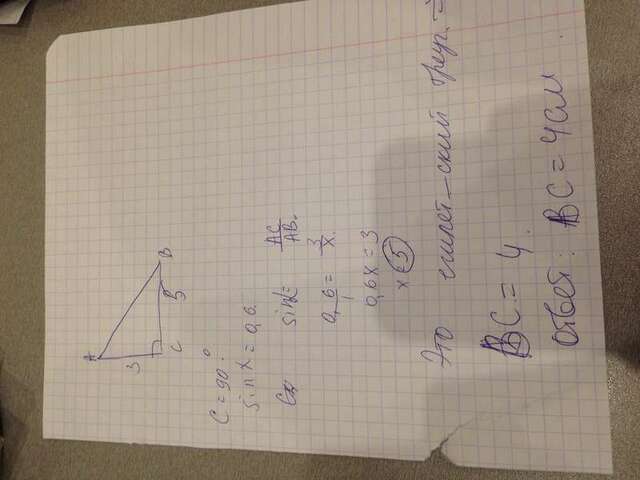 A
3
C
B
5
C = 90°.
sin X = 0,6.
sinα = AC/AB.
0,6/1 = 3/X.
0,6x = 3
x = 5
Это египет-ский треуг. =
BC = 4.
Ответ: BC = 4см